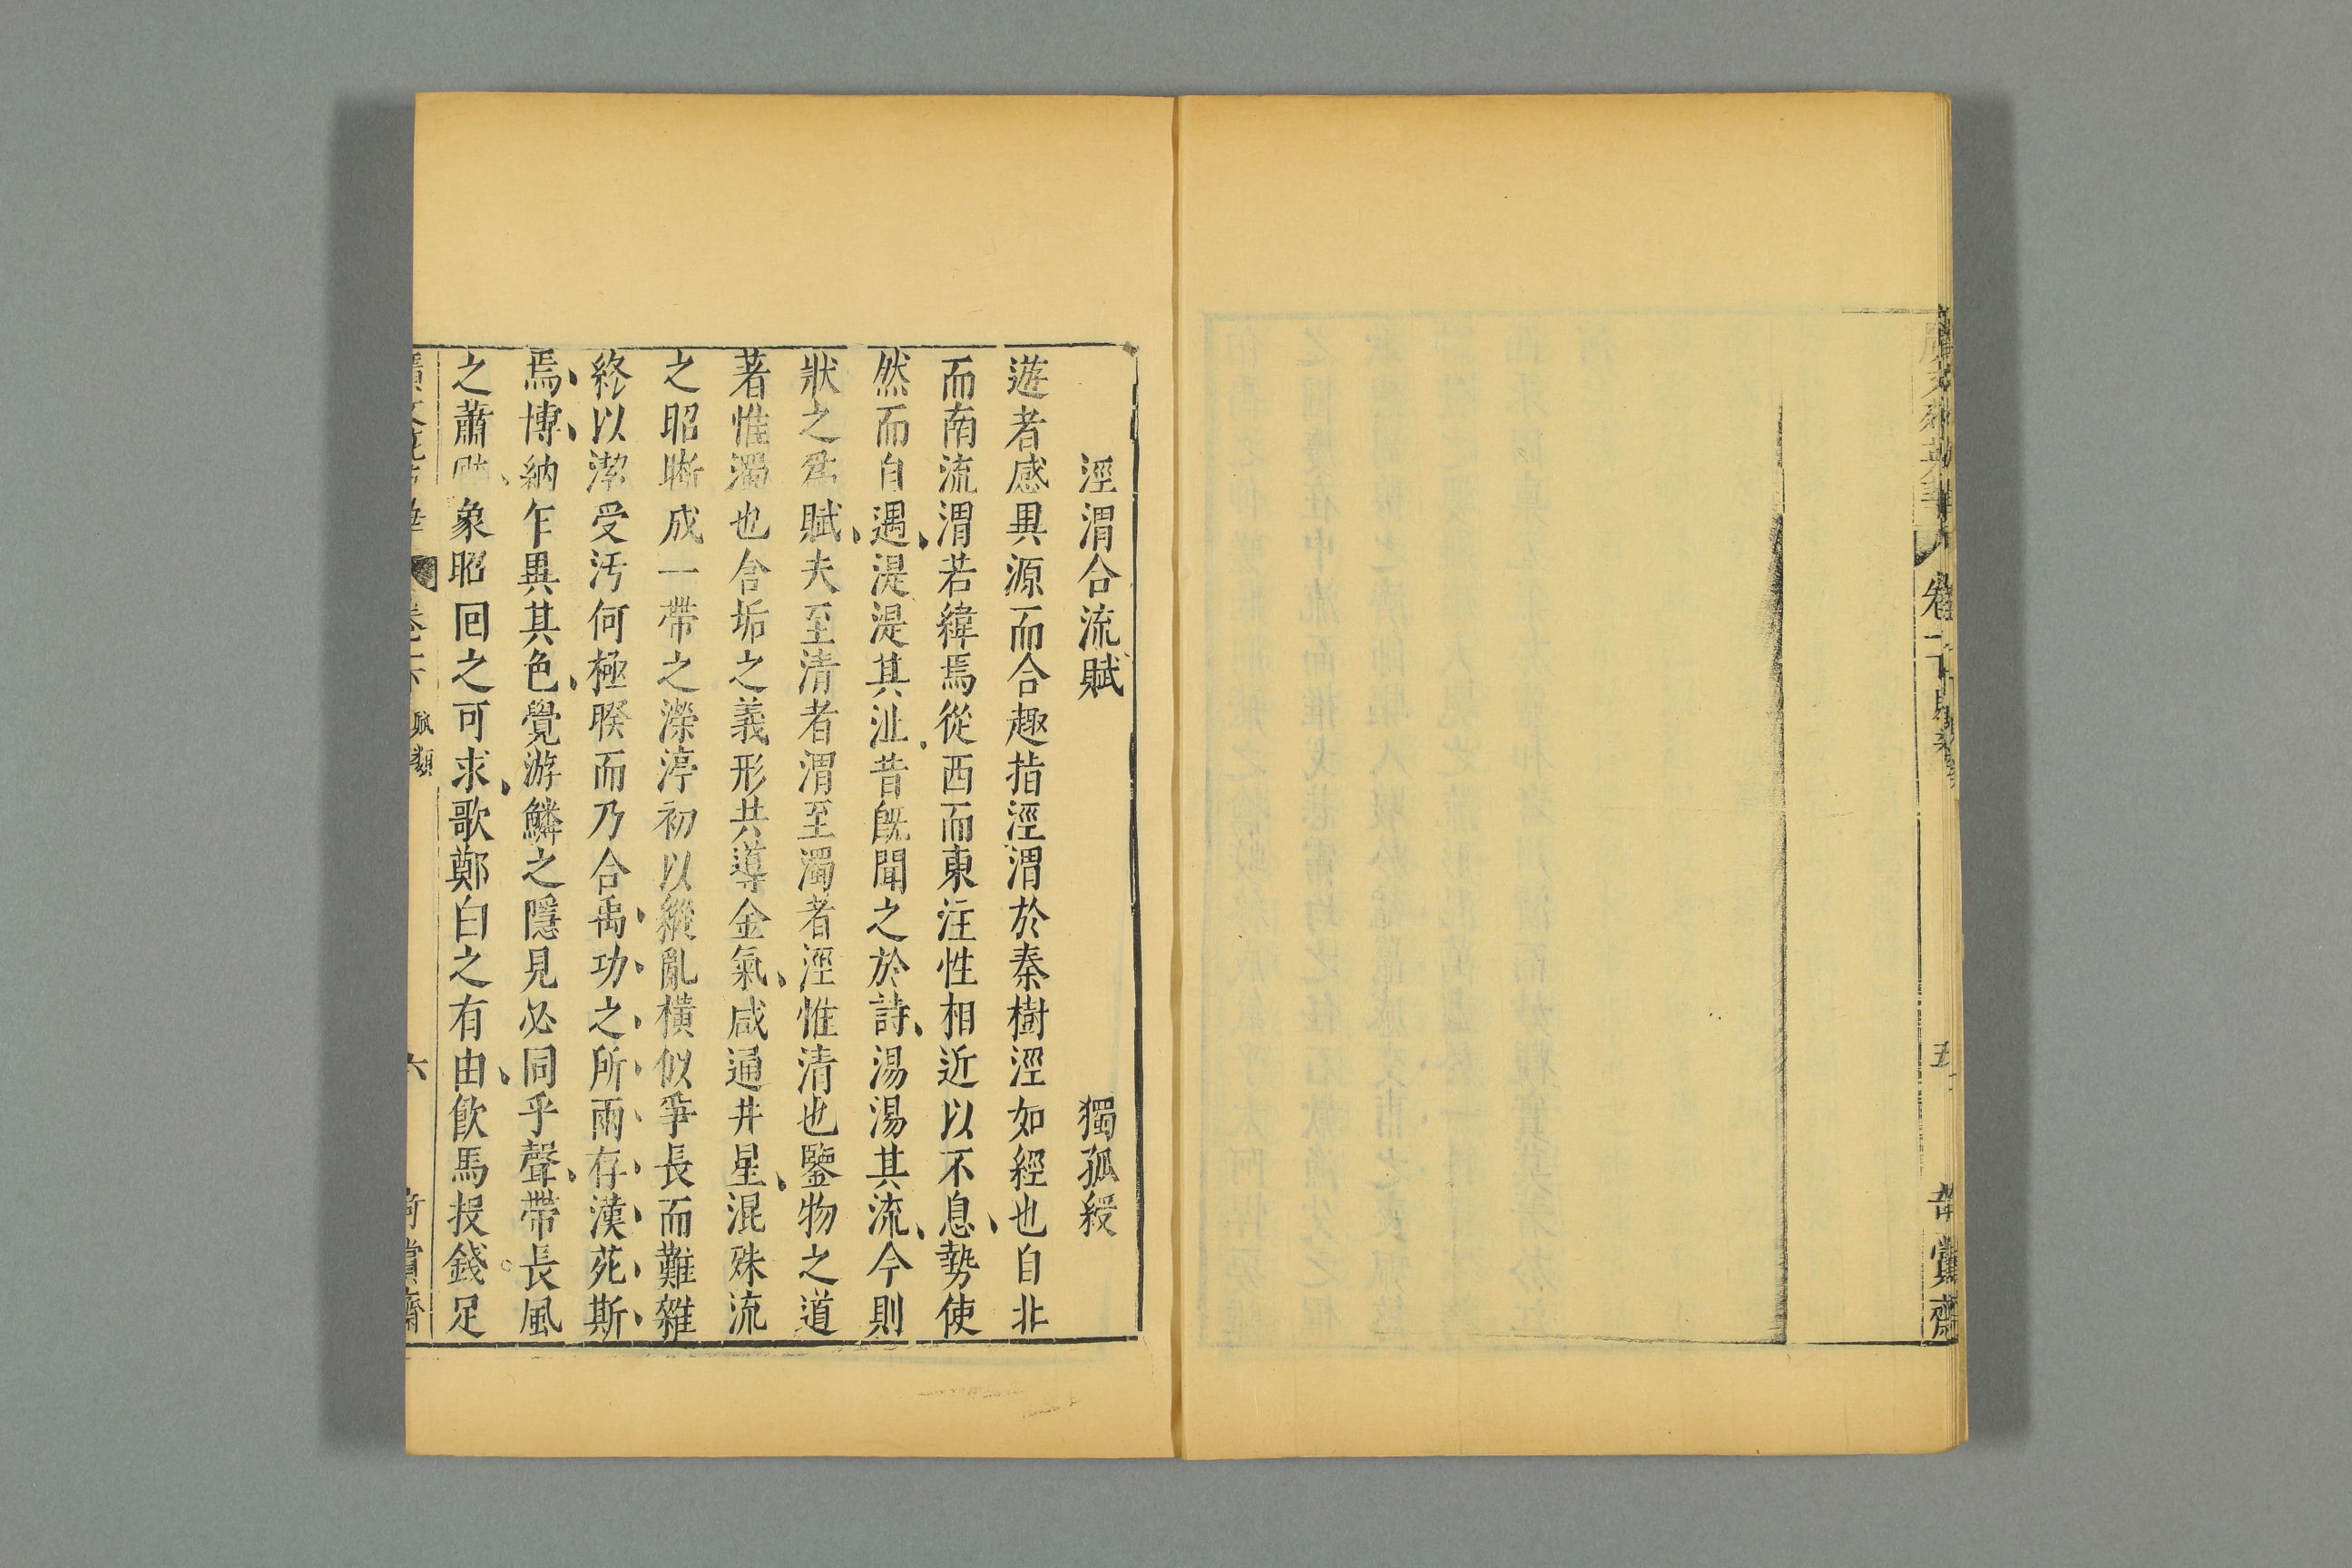 五
賞齋
涇渭合流賦 獨孤綬
遊者感異源而合趣指涇渭於秦樹涇如經也自北
而南流渭若緯焉從西而東注性相近以不息勢使
然而自遇湜湜其沚昔旣聞之於詩湯湯其流今則
狀之爲賦夫至清者渭至濁者涇惟清也鑒物之道
著惟濁也含垢之義形共導金氣咸通井星混殊流
之昭晣成一帶之濴渟初以縱亂橫似爭長而難雜
終以潔受汚何極睽而乃合禹功之所雨存漢苑斯
焉博納乍異其色覺游鱗之隱見必同乎聲帶長風
之蕭 象昭回之可求歌鄭白之有由飮馬投錢足
卷二 賦類 六 賞齋